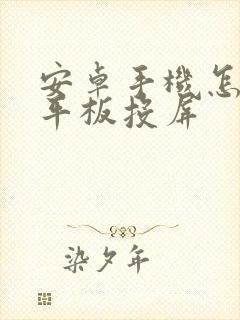 安卓手機怎
平板投屏
染夕年